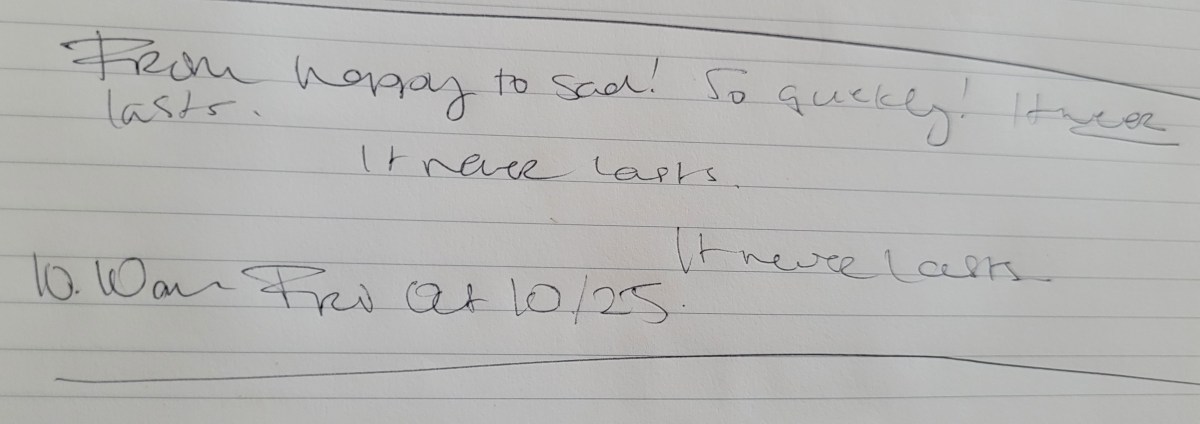 From happy to sad! So quickly! It never
lasts.
It never lasts.
It never lasts
10.10am Fri Oct 10/25.